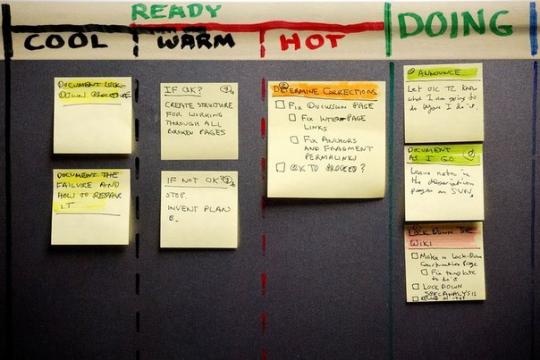 READY
COOL
WARM
HOT
DOING
DOCUMENT
DOWN PROCEDURE
DOCUMENT THE
FAILURE AND
HOW TO REPAIR
IT
IF OK?
CREATE STRUCTURE
FOR WORKING
THROUGH ALL
BROKEN PAGES
IF NOT OK?
STOP.
INVENT PLAN
DETERMINE CORRECTIONS
FIX PAGE
FIX
LINKS
FIX ANCHORS
AND FRAGMENT
PERMALINKS
OK TO PROCEED?
ANNOUNCE
Let know
what I am going to
do before I do it.
DOCUMENT
AS I GO
Leave notes in
the
pages on
LOCK DOWN THE
WIKI
Make a Lock-Down
Page
Fix template
to do it
LOCKDOWN